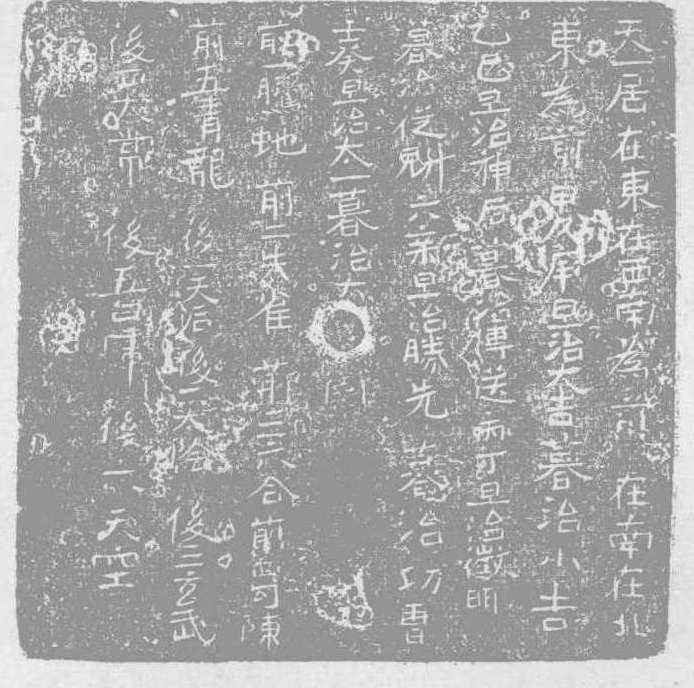 天一居在東在西南為前在南在北
東為前甲戊庚旦治大吉暮治小吉
乙己旦治神后暮治傳送丙丁旦治徵明
暮治從魁六辛旦治勝先暮治功曹
壬癸旦治太一暮治太
前一騰蛇前二朱雀前三六合前四句陳
前五青龍後一天后後二大陰後三玄武
後四大常後五白虎後六天空